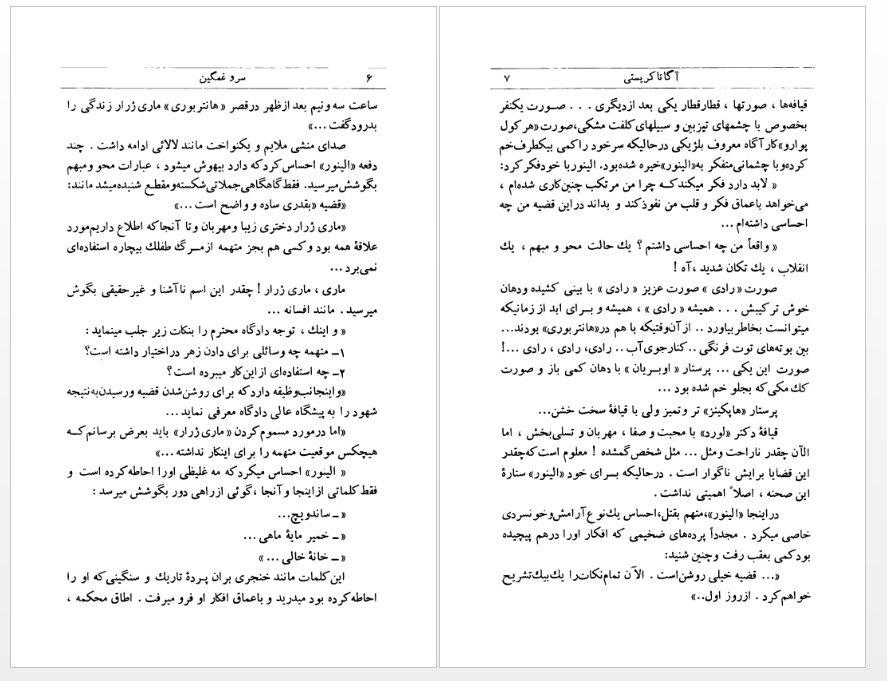 ۶ سرو غمگین
ساعت سه ونیم بعد ازظهر درقصر «هانتربوری» ماری ژرار زندگی را
بدرود گفت ...»
صدای منشی ملایم و یکنواخت مانند لالائی ادامه داشت . چند
دفعه «الینور» احساس کرد که دارد بیهوش میشود ، عبارات محو و مبهم
بگوشش میرسید. فقط گاهگاهی جملاتی شکسته و مقطع شنیده میشد مانند:
«قضیه «بقدری ساده و واضح است ...»
«ماری ژرار دختری زیبا ومهربان وتا آنجا که اطلاع داریم مورد
علاقهٔ همه بود و کسی هم بجز متهمه از مــرگ طفلك بیچاره استفاده‌ای
نمی‌برد ...
ماری ، ماری ژرار ! چقدر این اسم ناآشنا و غیرحقیقی بگوش
میرسید . مانند افسانه ...
« و اینك ، توجه دادگاه محترم را بنکات زیر جلب مینماید :
۱ــ متهمه چه وسائلی برای دادن زهر دراختیار داشته است؟
۲ــ چه استفاده‌ای از این کار میبرده است ؟
«واینجانب وظیفه دارد که برای روشن شدن قضیه ورسیدن به نتیجه
شهود را به پیشگاه عالی دادگاه معرفی نماید ...
«اما درمورد مسموم کردن «ماری ژرار» باید بعرض برسانم کــه
هیچکس موقعیت متهمه را برای اینکار نداشته ...»
« الینور» احساس میکرد که مه غلیظی اورا احاطه کرده است و
فقط کلماتی از اینجا و آنجا ، گوئی از راهی دور بگوشش میرسد :
« ــ ساندویچ...
« ــ خمیر مایهٔ ماهی ...
« ــ خانهٔ خالی ... »
این کلمات مانند خنجری بران پــردهٔ تاریك و سنگینی که او را
احاطه کرده بود میدرید و باعماق افکار او فرو میرفت . اطاق محکمه ،
آگاتا کریستی ۷
قیافه‌ها ، صورتها ، قطار قطار یکی بعد ازدیگری . . . صــورت یکنفر
بخصوص با چشمهای تیزبین و سبیلهای کلفت مشکی،صورت «هر کول
پوارو» کارآگاه معروف بلژیکی درحالیکه سرخود را کمی بیکطرف خم
کرده و با چشمانی متفکر به «الینور» خیره شده بود. الینور با خود فکر کرد:
« لابد دارد فکر میکند کــه چرا من مرتکب چنین کاری شده‌ام ،
می‌خواهد باعماق فکر و قلب من نفوذ کند و بداند دراین قضیه من چه
احساسی داشته‌ام ...
« واقعاً من چه احساسی داشتم ؟ یك حالت محو و مبهم ، یك
انقلاب ، یك تکان شدید ، آه !
صورت « رادی » صورت عزیز « رادی » با بینی کشیده ودهان
خوش ترکیبش . . . همیشه « رادی » ، همیشه و بــرای ابد از زمانیکه
میتوانست بخاطر بیاورد .. از آن‌وقتیکه با هم در«هانتربوری» بودند...
بین بوته‌های توت فرنگی .. کنارجوی آب .. رادی، رادی ، رادی ...!
صورت این یکی ... پرستار « اوبــریان » با دهان کمی باز و صورت
كك مکی که بجلو خم شده بود ...
پرستار «هاپکینز» تر وتمیز ولی با قیافهٔ سخت خشن...
قیافهٔ دکتر «لورد» با محبت و صفا ، مهربان و تسلی‌بخش ، اما
الآن چقدر ناراحت ومثل ... مثل شخص گمشده ! معلوم است که چقدر
این قضایا برایش ناگوار است . درحالیکه بــرای خود «الینور» ستارهٔ
این صحنه ، اصلاً اهمیتی نداشت .
دراینجا «الینور»،متهم بقتل،احساس یك نوع آرامش وخونسردی
خاصی میکرد . مجدداً پرده‌های ضخیمی که افکار اورا درهم پیچیده
بود کمی بعقب رفت وچنین شنید:
«... قضیه خیلی روشن است . الآن تمام نکات را یك بیك تشریح
خواهم کرد . از روز اول..»